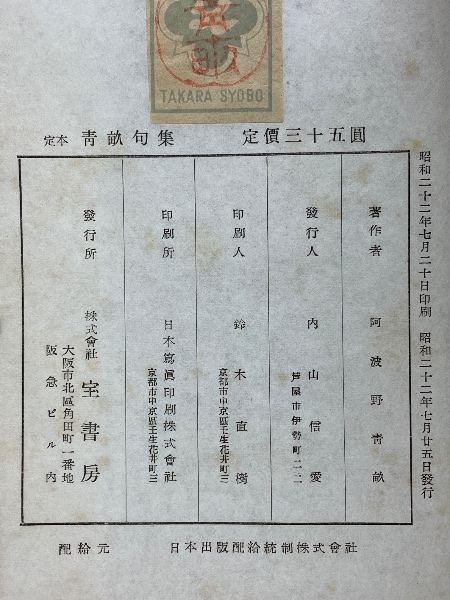 TAKARA SYOBO
定本 靑畝句集 定價三十五圓
昭和二十二年七月二十日印刷 昭和二十二年七月廿五日發行
著作者 阿波野靑畝
發行人 內山信愛
芦屋市伊勢町二二
印刷人 鈴木直樹
京都市中京區壬生花井町三
印刷所 日本寫眞印刷株式會社
京都市中京區壬生花井町三
發行所 株式會社 宝書房
大阪市北區角田町一番地
阪急ビル內
配給元 日本出版配給統制株式會社